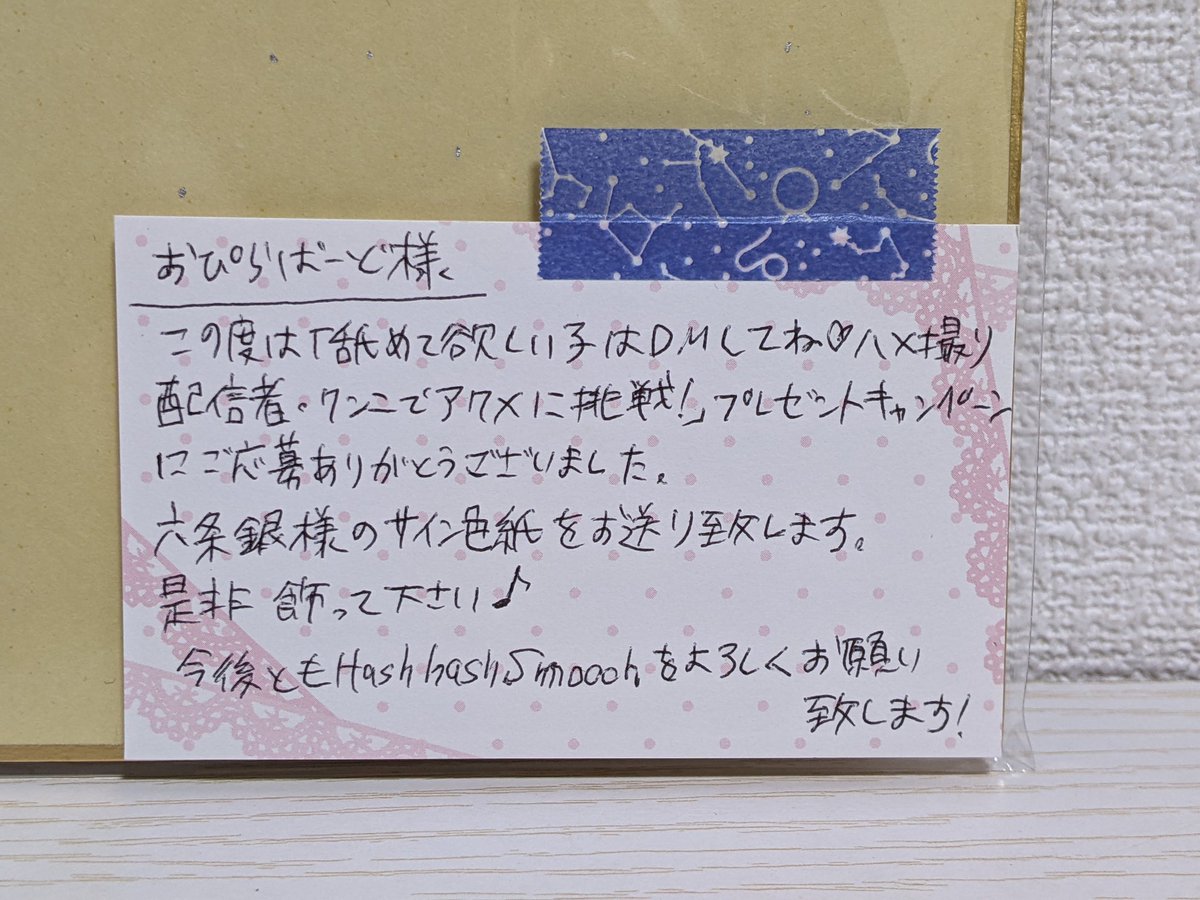 おぴらばーど様、
この度は「舐めて欲しい子はDMしてね♡ハメ撮り
配信者・クンニでアクメに挑戦!」プレゼントキャンペーン
にご応募ありがとうございました。
六条銀様のサイン色紙をお送り致します。
是非 飾って下さい♪
今後ともHash hash Smoochをよろしくお願い
致します!